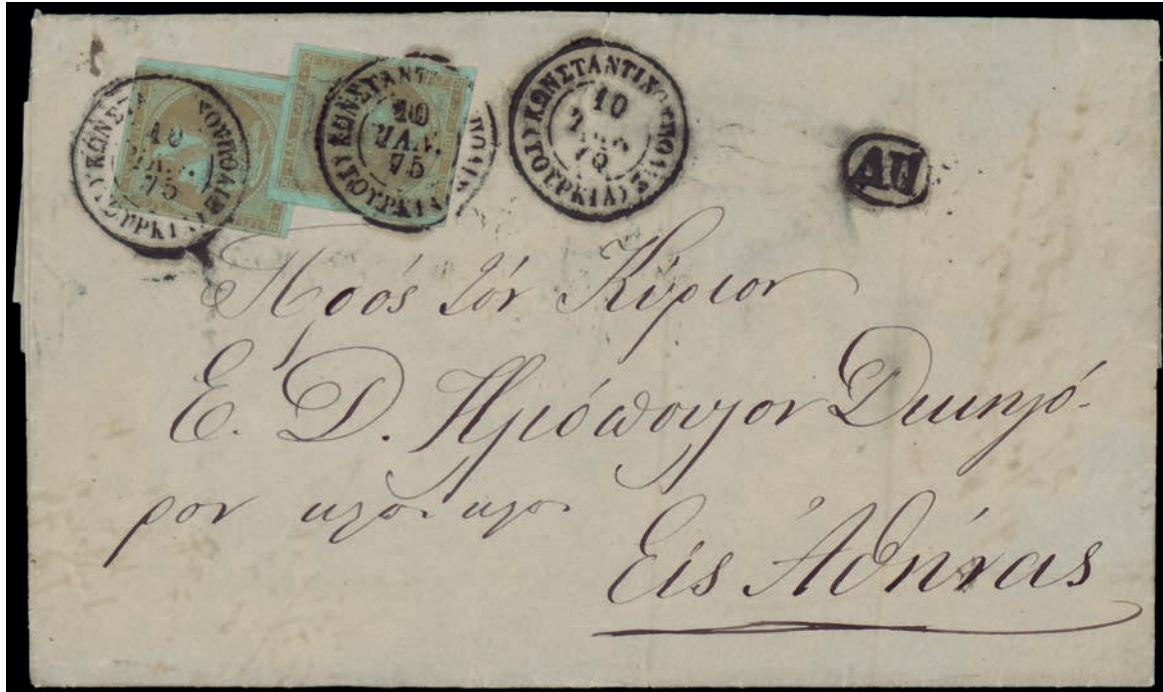 ΚΩΝΣΤΑΝΤΙΝΟΥΠΟΛΙΣ
10
ΙΑΝ.
75
(ΤΟΥΡΚΙΑ)
ΚΩΝΣΤΑΝΤΙΝΟΥΠΟΛΙΣ
10
ΙΑΝ.
75
(ΤΟΥΡΚΙΑ)
ΚΩΝΣΤΑΝΤΙΝΟΥΠΟΛΙΣ
10
75
(ΤΟΥΡΚΙΑ)
ΔΠ
Πρὸς τὸν Κύριον
Ε. Δ. Ηλιόπουλον Δικηγό-
ρον κλπ. κλπ.
Εἰς Ἀθήνας